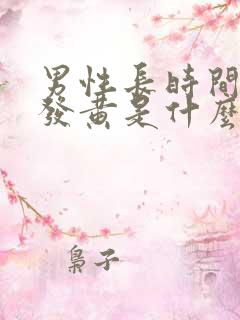 男性長時間
發黃是什麼
梟子